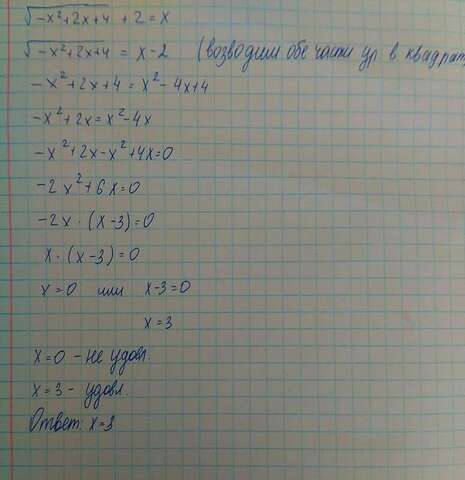 √(-x²+2x+4) + 2 = x
√(-x²+2x+4) = x-2 (возводим обе части ур в квадрат
-x²+2x+4 = x²-4x+4
-x²+2x = x²-4x
-x²+2x-x²+4x=0
-2x²+6x=0
-2x·(x-3)=0
x·(x-3)=0
x=0 или x-3=0
x=3
x=0 - не удовл.
x=3 - удовл.
Ответ: x=3